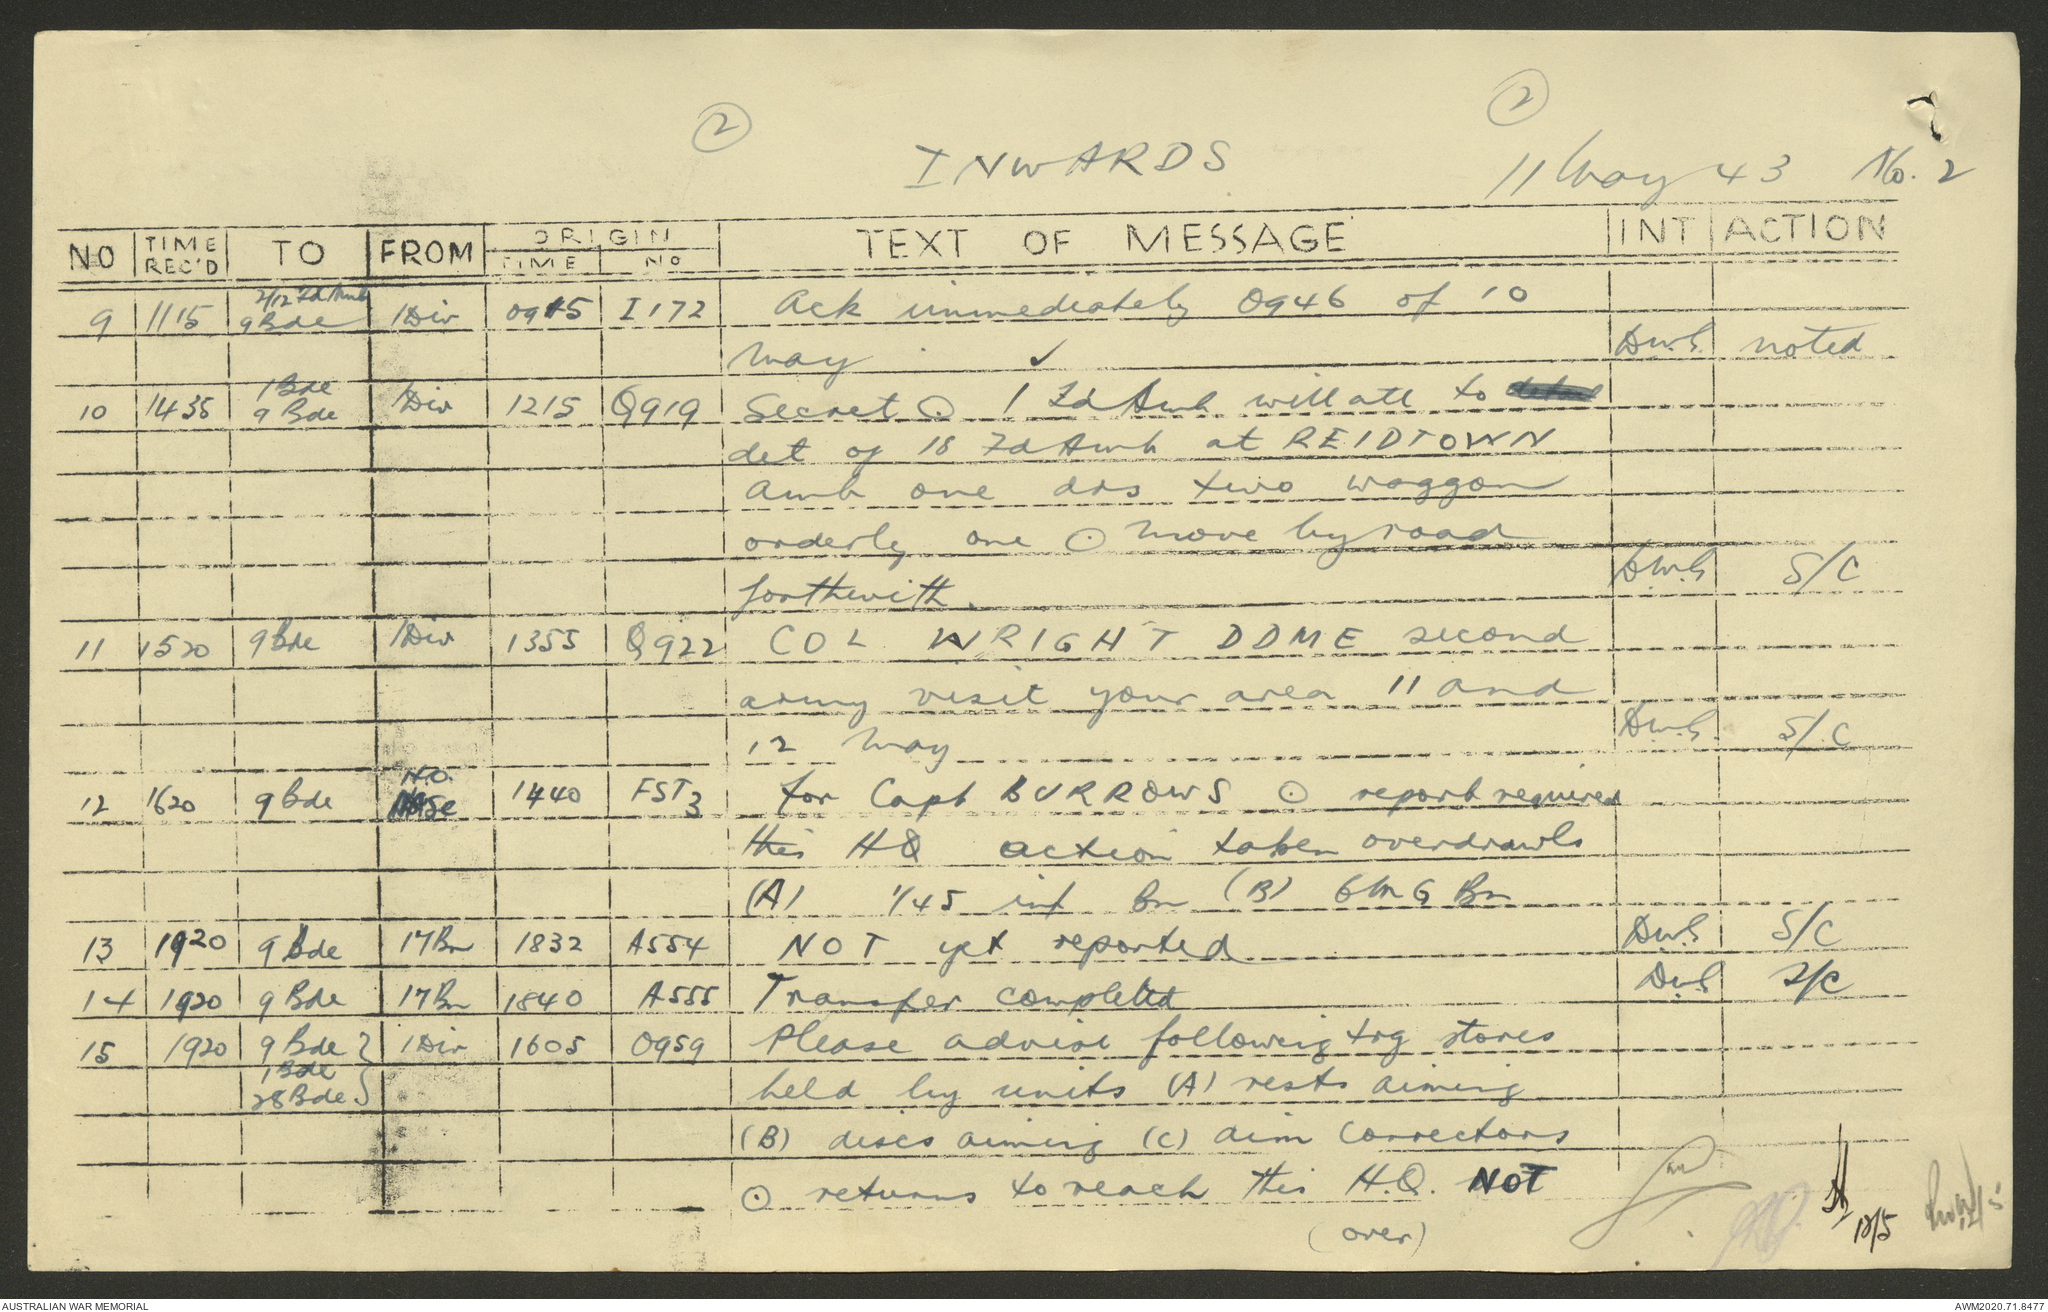 2
2
INWARDS
11 May 43 No. 2
NO TIME REC'D TO FROM ORIGIN TIME NO TEXT OF MESSAGE INT ACTION
2/12 Fd Amb
9 1115 9 Bde 1 Div 0915 I172 Ack immediately O946 of 10
May ✓ D.W.S. noted
1 Bde
10 1435 9 Bde 1 Div 1215 Q919 Secret ⊙ 1 Fd Amb will att to
det of 18 Fd Amb at REIDTOWN
amb one drs two waggon
orderly one ⊙ Move by road
forthwith. S/C
11 1520 9 Bde 1 Div 1355 Q922 COL WRIGHT DDME second
army visit your area 11 and
12 May S/C
H.Q.
12 1620 9 Bde 1440 FST3 for Capt BURROWS ⊙ report required
this HQ action taken overdrawls
(A) 1/45 inf Bn (B) 6 MG Bn
13 1920 9 Bde 17 Bn 1832 A554 NOT yet reported S/C
14 1920 9 Bde 17 Bn 1840 A555 Transfer completed S/C
15 1920 9 Bde 1 Div 1605 O959 Please advise following trg stores
1 Bde
28 Bde held by units (A) rests aiming
(B) discs aiming (C) aim correctors
⊙ returns to reach this H.Q. NOT
(over)
12/5
AUSTRALIAN WAR MEMORIAL
AWM2020.71.8477